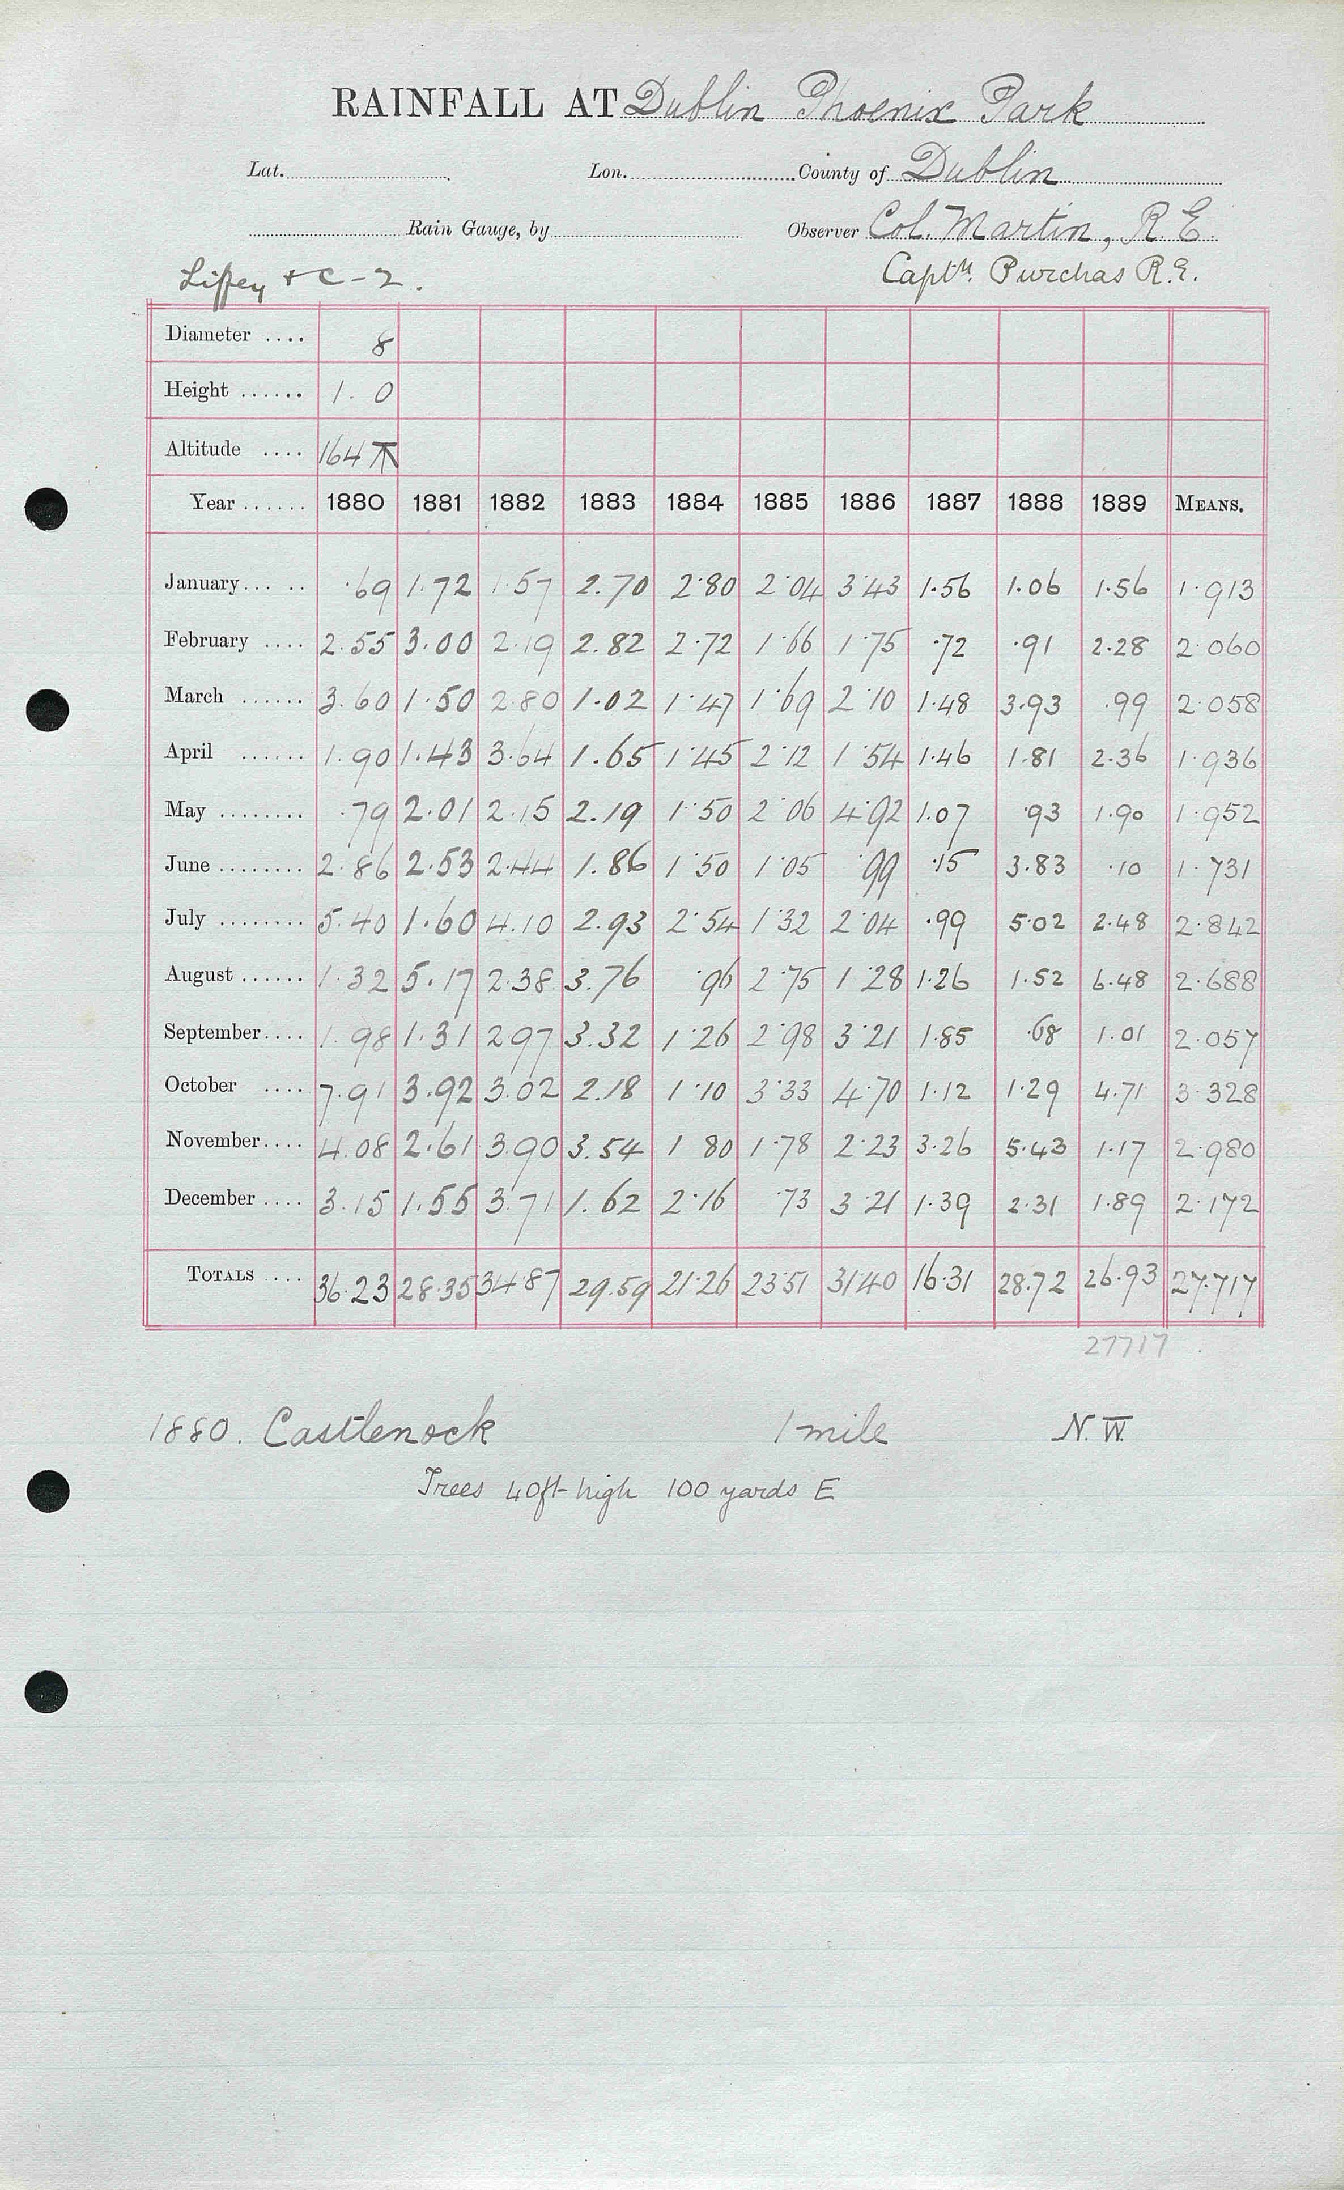 RAINFALL AT Dublin Phoenix Park
Lat. Lon. County of Dublin
Rain Gauge, by Observer Col. Martin, R.E.
Liffey + C-2. Captn. Purchas R.E.
Diameter .... 8
Height ...... 1. 0
Altitude .... 164
Year ...... 1880 1881 1882 1883 1884 1885 1886 1887 1888 1889 MEANS.
January... .. .69 1.72 1.57 2.70 2.80 2.04 3.43 1.56 1.06 1.56 1.913
February .... 2.55 3.00 2.19 2.82 2.72 1.66 1.75 .72 .91 2.28 2.060
March ...... 3.60 1.50 2.80 1.02 1.47 1.69 2.10 1.48 3.93 .99 2.058
April ...... 1.90 1.43 3.64 1.65 1.45 2.12 1.54 1.46 1.81 2.36 1.936
May ........ .79 2.01 2.15 2.19 1.50 2.06 4.92 1.07 .93 1.90 1.952
June ........ 2.86 2.53 2.44 1.86 1.50 1.05 .99 .15 3.83 .10 1.731
July ........ 5.40 1.60 4.10 2.93 2.54 1.32 2.04 .99 5.02 2.48 2.842
August ...... 1.32 5.17 2.38 3.76 .96 2.75 1.28 1.26 1.52 6.48 2.688
September.... 1.98 1.31 2.97 3.32 1.26 2.98 3.21 1.85 .68 1.01 2.057
October .... 7.91 3.92 3.02 2.18 1.10 3.33 4.70 1.12 1.29 4.71 3.328
November.... 4.08 2.61 3.90 3.54 1 80 1.78 2.23 3.26 5.43 1.17 2.980
December .... 3.15 1.55 3.71 1.62 2.16 .73 3.21 1.39 2.31 1.89 2.172
TOTALS .... 36.23 28.35 34.87 29.59 21.26 23.51 31.40 16.31 28.72 26.93 27.717
27717
1880. Castlenock 1 mile N.W.
Trees 40ft high 100 yards E